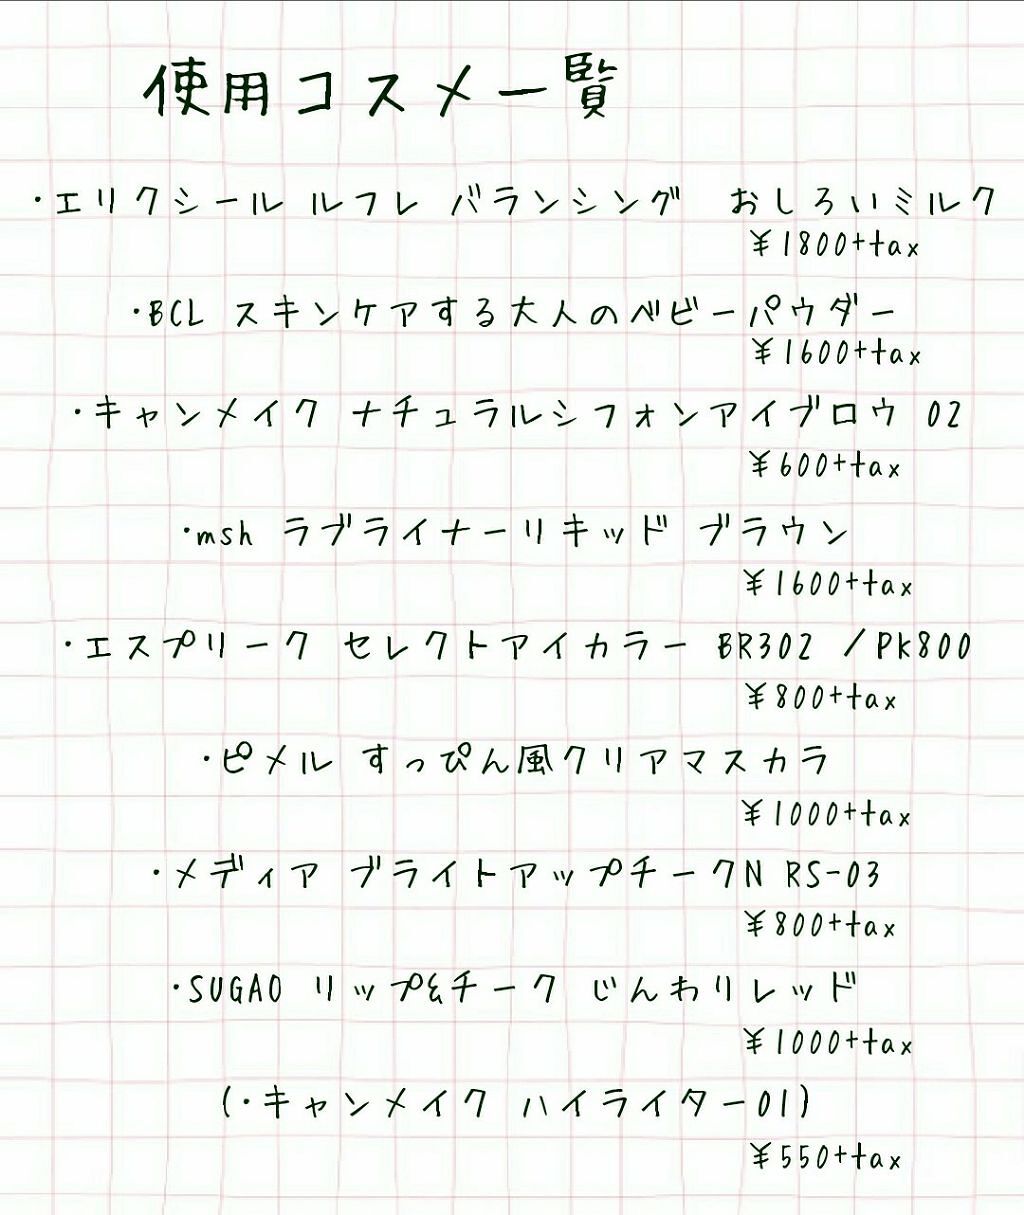 使用コスメ一覧
・エリクシール ルフレ バランシング おしろいミルク
¥1800+tax
・BCL スキンケアする大人のベビーパウダー
¥1600+tax
・キャンメイク ナチュラルシフォンアイブロウ 02
¥600+tax
・msh ラブライナーリキッド ブラウン
¥1600+tax
・エスプリーク セレクトアイカラー BR302 /PK800
¥800+tax
・ピメル すっぴん風クリアマスカラ
¥1000+tax
・メディア ブライトアップチークN RS-03
¥800+tax
・SUGAO リップ&チーク じんわりレッド
¥1000+tax
(・キャンメイク ハイライター01)
¥550+tax